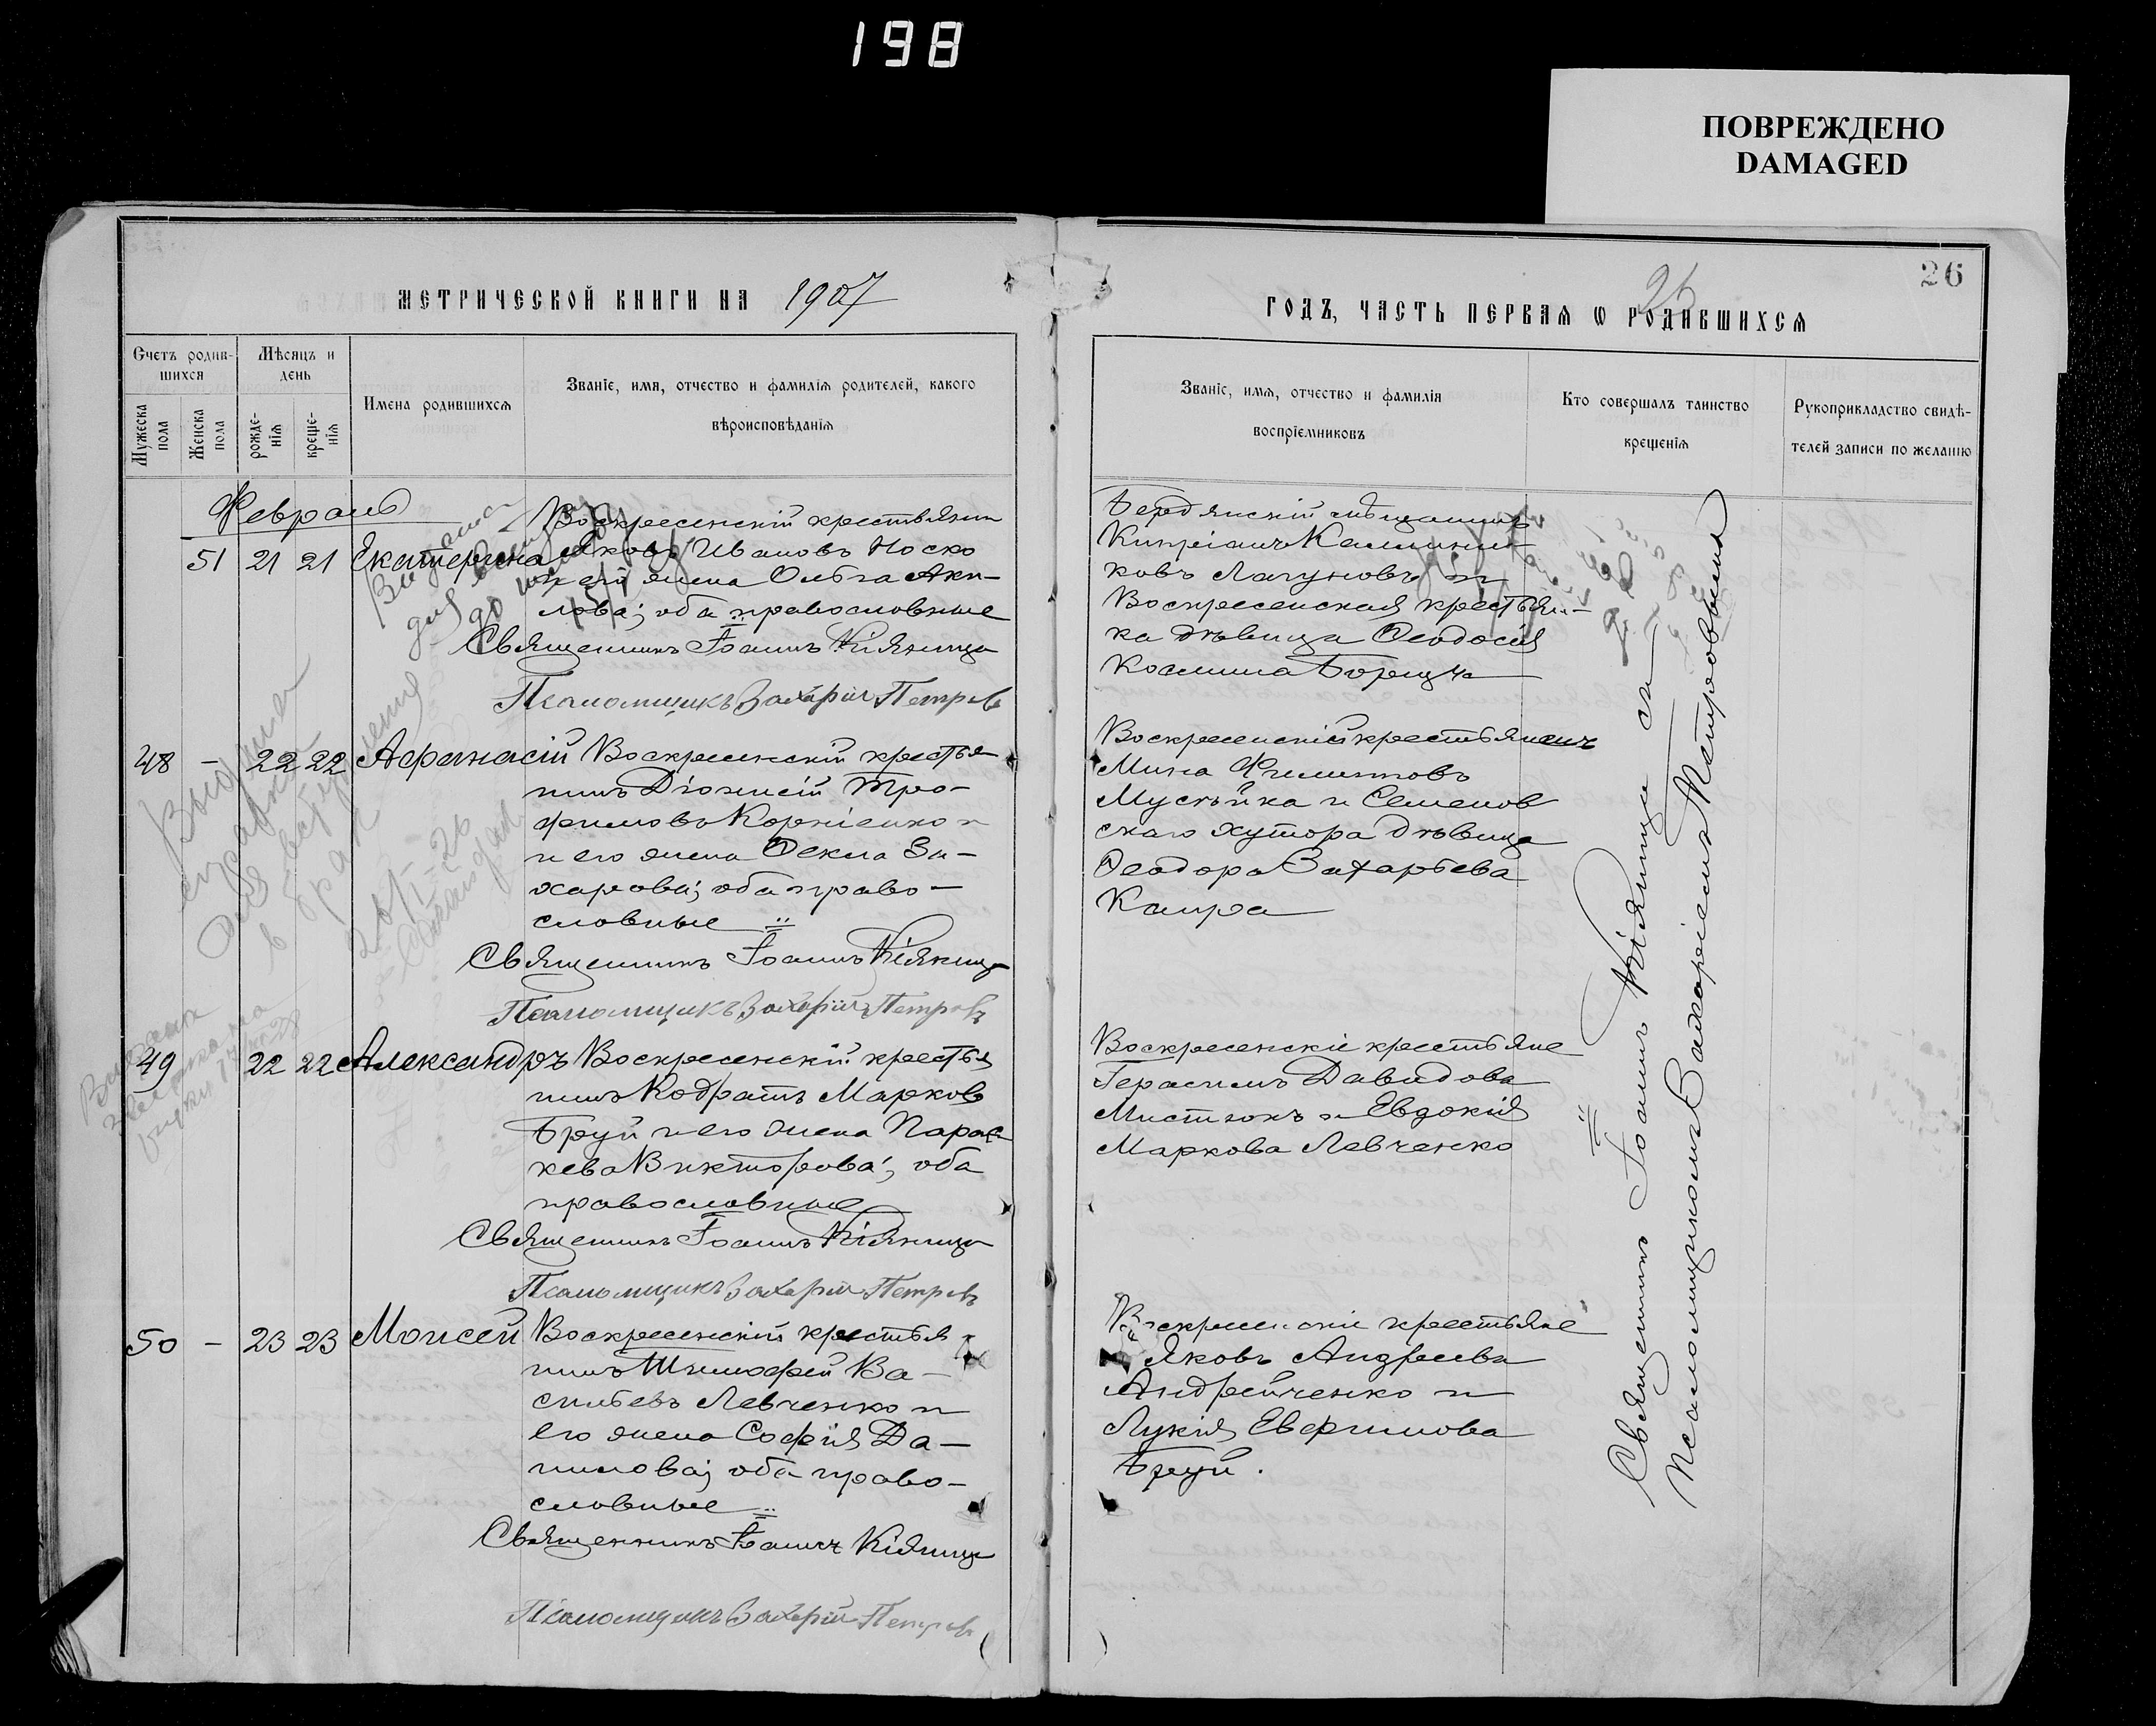 198
ПОВРЕЖДЕНО
DAMAGED
26
МЕТРИЧЕСКОЙ КНИГИ НА 1907
ГОДЪ, ЧАСТЬ ПЕРВАЯ Ѡ РОДИВШИХСѦ
Счетъ родив-
шихся
Мѣсяцъ и
день
Мужеска
пола
Женска
пола
рожде-
нія
креще-
нія
Имена родившихся
Званіе, имя, отчество и фамилія родителей, какого
вѣроисповѣданія
Званіе, имя, отчество и фамилія
воспріемниковъ
Кто совершалъ таинство
крещенія
Рукоприкладство свидѣ-
телей записи по желанію
Февраль
51 21 21 Екатерина
Воскресенскій крестьянин
Яковъ Ивановъ Носко
и его жена Ольга Аки-
лова; оба православные
Священникъ Іоаннъ Кіяница
Псаломщикъ Захарій Петровъ
Бердянскій мѣщанинъ
Кипріанъ Каллини-
ковъ Лагуновъ и
Воскресенская крестьян-
ка дѣвица Ѳеодосія
Косьмина Борщъ
48 - 22 22 Афанасій
Воскресенскій крестья-
нинъ Діонисій Тро-
фимовъ Корніенко
и его жена Ѳекла За-
харова; оба право-
славные
Священникъ Іоаннъ Кіяница
Псаломщикъ Захарій Петровъ
Воскресенскій крестьянинъ
Мина Филипповъ
и Семенов
скаго хутора дѣвица
Ѳеодора Захарьева
Каира
49 22 22 Александръ
Воскресенскій крестья
нинъ Кодратъ Марковъ
Бруй и его жена Парас
кева Викторова; оба
православные
Священникъ Іоаннъ Кіяница
Псаломщикъ Захарій Петровъ
Воскресенскіе крестьяне
Герасимъ Давидовъ
и Евдокія
Маркова Левченко
50 - 23 23 Моисей
Воскресенскій крестья
нинъ Тимофей Ва-
сильевъ Левченко и
его жена Софія Да-
нилова; оба право-
славные
Священникъ Іоаннъ Кіяница
Псаломщикъ Захарій Петровъ
Воскресенскіе крестьяне
Яковъ Андреевъ
Андрейченко и
Лукія Евфимова
Бруй.
Священникъ Іоаннъ Кіяница съ
Псаломщикомъ Захаріемъ Петровымъ